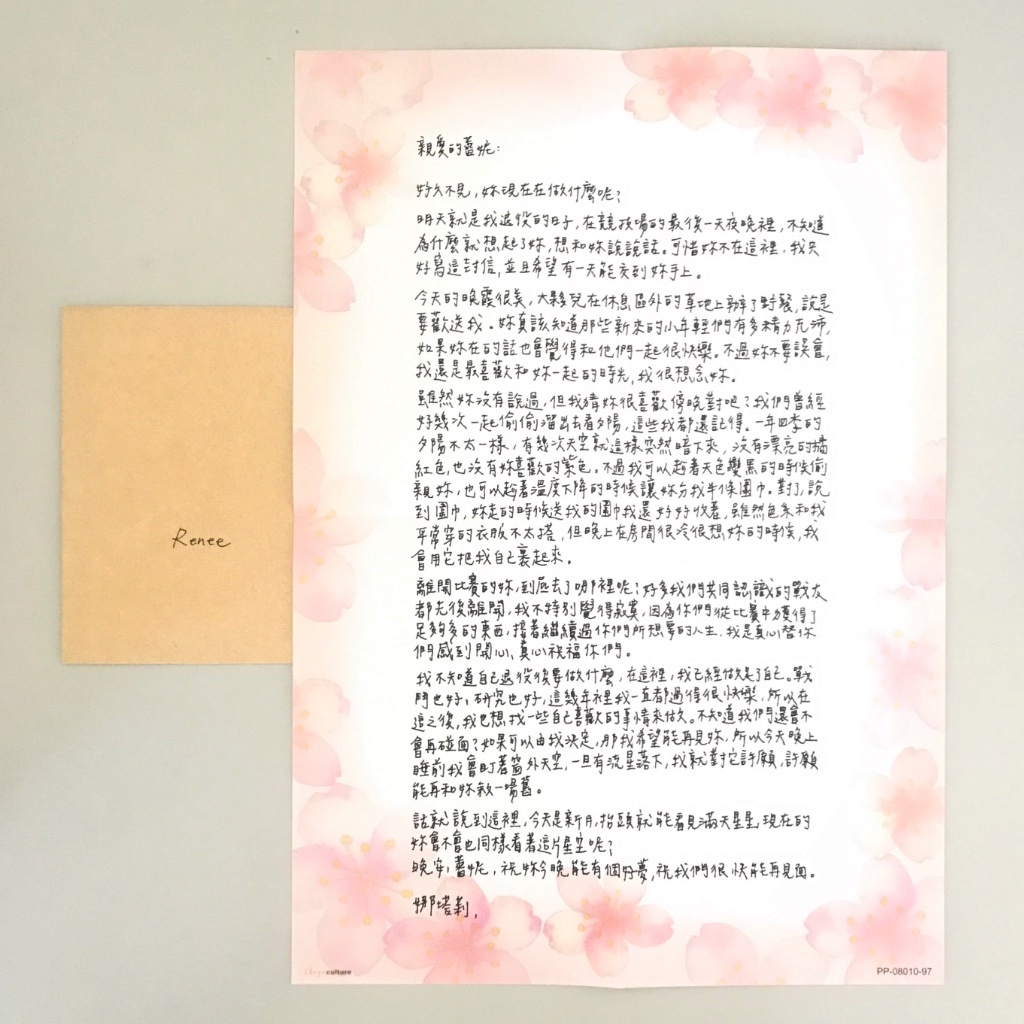 親愛的蕾妮:
好久不見,妳現在在做什麼呢?
明天就是我退役的日子,在競技場的最後一天夜晚裡,不知道
為什麼就想起了妳,想和妳說說話。可惜妳不在這裡,我只
好寫這封信,並且希望有一天能交到妳手上。
今天的晚霞很美,大夥兒在休息區外的草地上辦了野餐,說是
要歡送我。妳真該知道那些新來的小年輕們有多精力充沛,
如果妳在的話也會覺得和他們一起很快樂。不過妳不要誤會,
我還是最喜歡和妳一起的時光,我很想念妳。
雖然妳沒有說過,但我猜妳很喜歡傍晚對吧?我們曾經
好幾次一起偷偷溜出去看夕陽,這些我都還記得。一年四季的
夕陽不太一樣,有幾次天空就這樣突然暗下來,沒有漂亮的橘
紅色,也沒有妳喜歡的紫色。不過我可以趁著天色變黑的時候偷
親妳,也可以趁著溫度下降的時候讓妳分我半條圍巾。對了,說
到圍巾,妳走的時候送我的圍巾我還好好收著,雖然色系和我
平常穿的衣服不太搭,但晚上在房間很冷很想妳的時候,我
會用它把我自己裹起來。
離開比賽的妳,到底去了哪裡呢?好多我們共同認識的戰友
都先後離開,我不特別覺得寂寞,因為你們從比賽中獲得了
足夠多的東西,接著繼續過你們所想要的人生,我是真心替你
們感到開心、真心祝福你們。
我不知道自己退役後要做什麼,在這裡,我已經做足了自己。戰
鬥也好,研究也好,這幾年裡我一直都過得很快樂,所以在
這之後,我也想找一些自己喜歡的事情來做。不知道我們還會不
會再碰面?如果可以由我決定,那我希望能再見妳,所以今天晚上
睡前我會盯著窗外天空,一旦有流星落下,我就對它許願,許願
能再和妳敘一場舊。
話就說到這裡,今天是新月,抬頭就能看見滿天星星,現在的
妳會不會也同樣看著這片星空呢?
晚安,蕾妮,祝妳今晚能有個好夢,祝我們很快能再見面。
娜塔莉,
Renee
culture
PP-08010-97